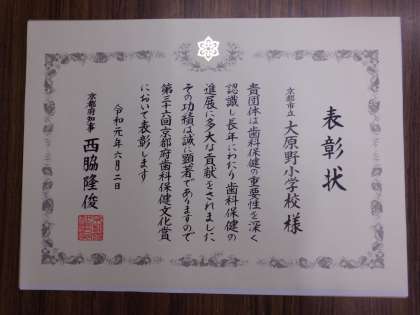 表彰状
京都市立 大原野小学校 様
貴団体は歯科保健の重要性を深く
認識し長年にわたり歯科保健の
進展に多大な貢献をされました
その功績は誠に顕著でありますので
第三十六回京都府歯科保健文化賞
において表彰します
令和元年六月二日
京都府知事 西脇隆俊